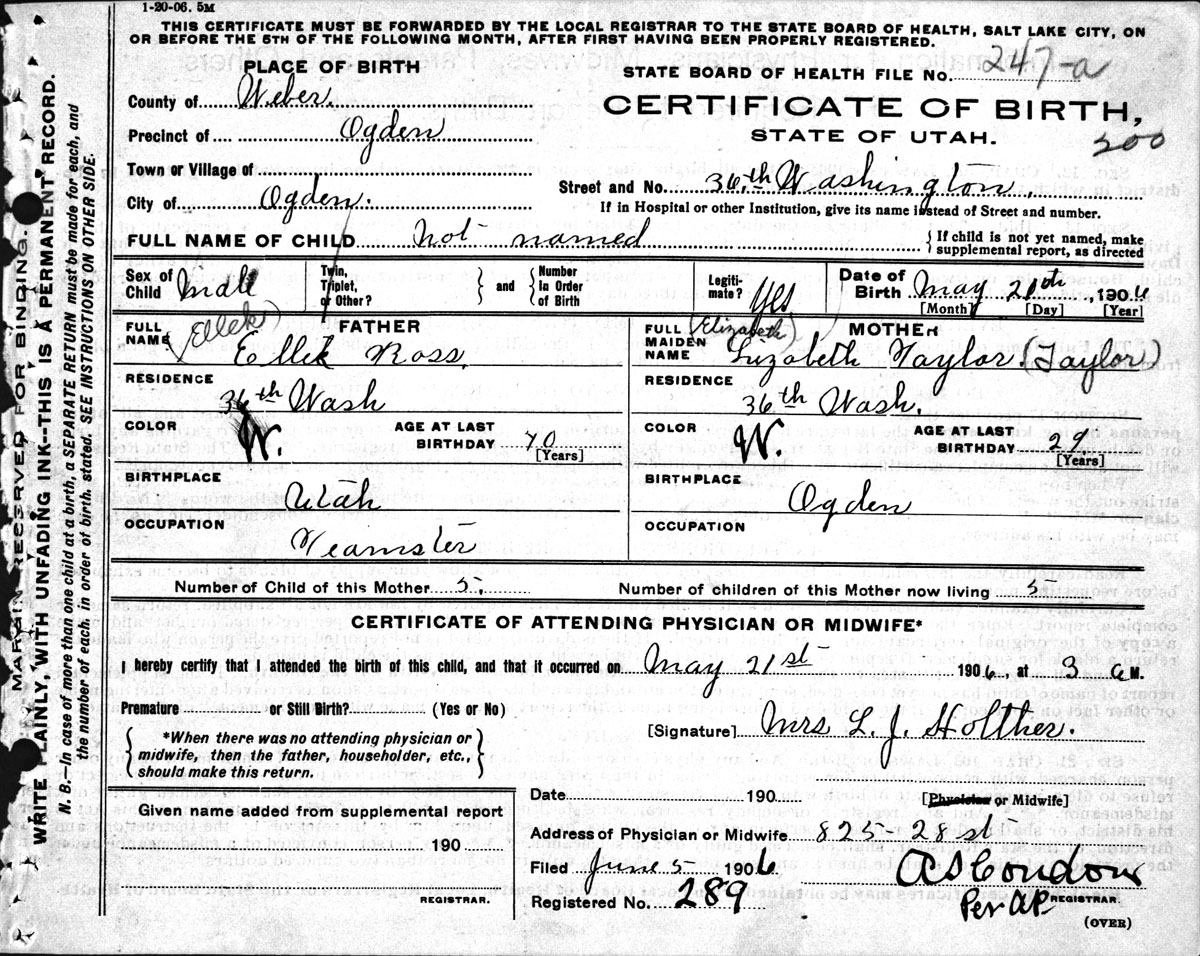 1-20-06. 5M
THIS CERTIFICATE MUST BE FORWARDED BY THE LOCAL REGISTRAR TO THE STATE BOARD OF HEALTH, SALT LAKE CITY, ON
OR BEFORE THE 5TH OF THE FOLLOWING MONTH, AFTER FIRST HAVING BEEN PROPERLY REGISTERED.
PLACE OF BIRTH
STATE BOARD OF HEALTH FILE No. 247-a
County of Weber.
CERTIFICATE OF BIRTH,
Precinct of Ogden
STATE OF UTAH.
200
Town or Village of
Street and No. 36.th Washington.
City of Ogden.
If in Hospital or other Institution, give its name instead of Street and number.
FULL NAME OF CHILD not named
{ If child is not yet named, make
supplemental report, as directed
Sex of Child Male
Twin, Triplet, or Other? } and { Number In Order of Birth
Legitimate? Yes
Date of Birth May 21th, 1906
[Month] [Day] [Year]
FULL NAME FATHER
(Ellek)
Ellek Ross.
FULL MAIDEN NAME MOTHER
(Elizabeth)
Lizabeth Taylor. (Taylor)
RESIDENCE
36th Wash
RESIDENCE
36th Wash.
COLOR W.
AGE AT LAST BIRTHDAY 40
[Years]
COLOR W.
AGE AT LAST BIRTHDAY 29
[Years]
BIRTHPLACE
Utah
BIRTHPLACE
Ogden
OCCUPATION
Teamster
OCCUPATION
Number of Child of this Mother 5.
Number of children of this Mother now living 5
CERTIFICATE OF ATTENDING PHYSICIAN OR MIDWIFE*
I hereby certify that I attended the birth of this child, and that it occurred on May 21st 1906, at 3 a M.
Premature or Still Birth? (Yes or No)
{ *When there was no attending physician or
midwife, then the father, householder, etc.,
should make this return. }
[Signature] Mrs L. J. Holther.
Date 190
[Physician or Midwife]
Given name added from supplemental report
190
REGISTRAR.
Address of Physician or Midwife 825- 28st
Filed June 5 1906
A S Condon
Registered No. 289
Per AP REGISTRAR.
(OVER)
MARGIN RESERVED FOR BINDING.
WRITE PLAINLY, WITH UNFADING INK--THIS IS A PERMANENT RECORD.
N. B.--In case of more than one child at a birth, a SEPARATE RETURN must be made for each, and
the number of each, in order of birth, stated. SEE INSTRUCTIONS ON OTHER SIDE.